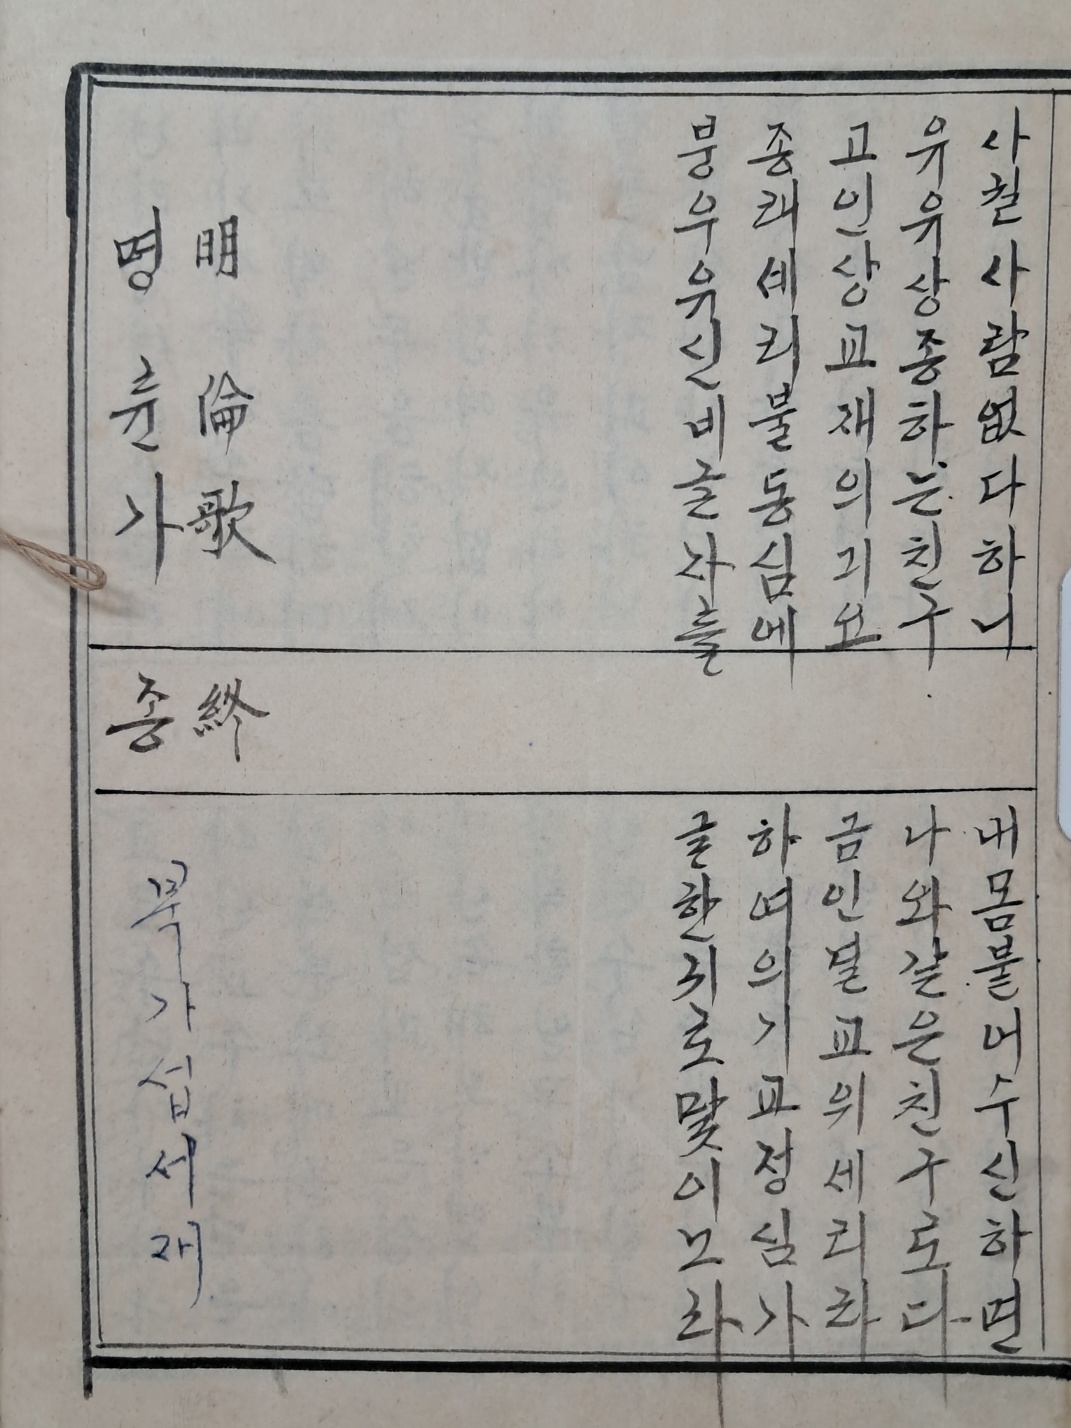 사 사람없다하니
내몸 수신하면
유유상종하는친구
나와갈은친구로다
고인상교재의리요
금인별교위세리라
종래세리불동심에
하여의기교정심가
붕우유신비글자를
글한지로맟이보라
明倫歌
명륜가
終
종
묵가섭세재